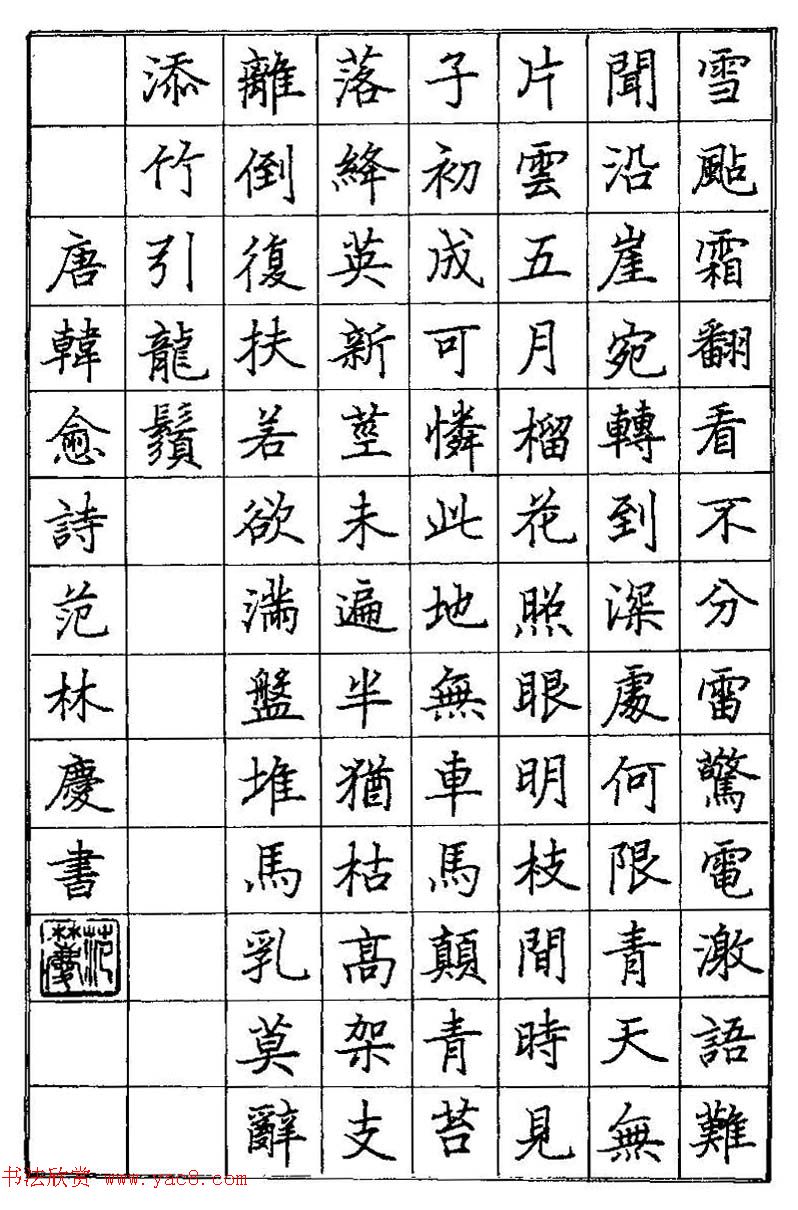 雪颭霜翻看不分雷驚電激語難
聞沿崖宛轉到深處何限青天無
片雲五月榴花照眼明枝間時見
子初成可憐此地無車馬顛青苔
落絳英新莖未遍半猶枯高架支
離倒復扶若欲滿盤堆馬乳莫辭
添竹引龍鬚
唐韓愈詩范林慶書
范林慶
书法欣赏 www.yac8.com